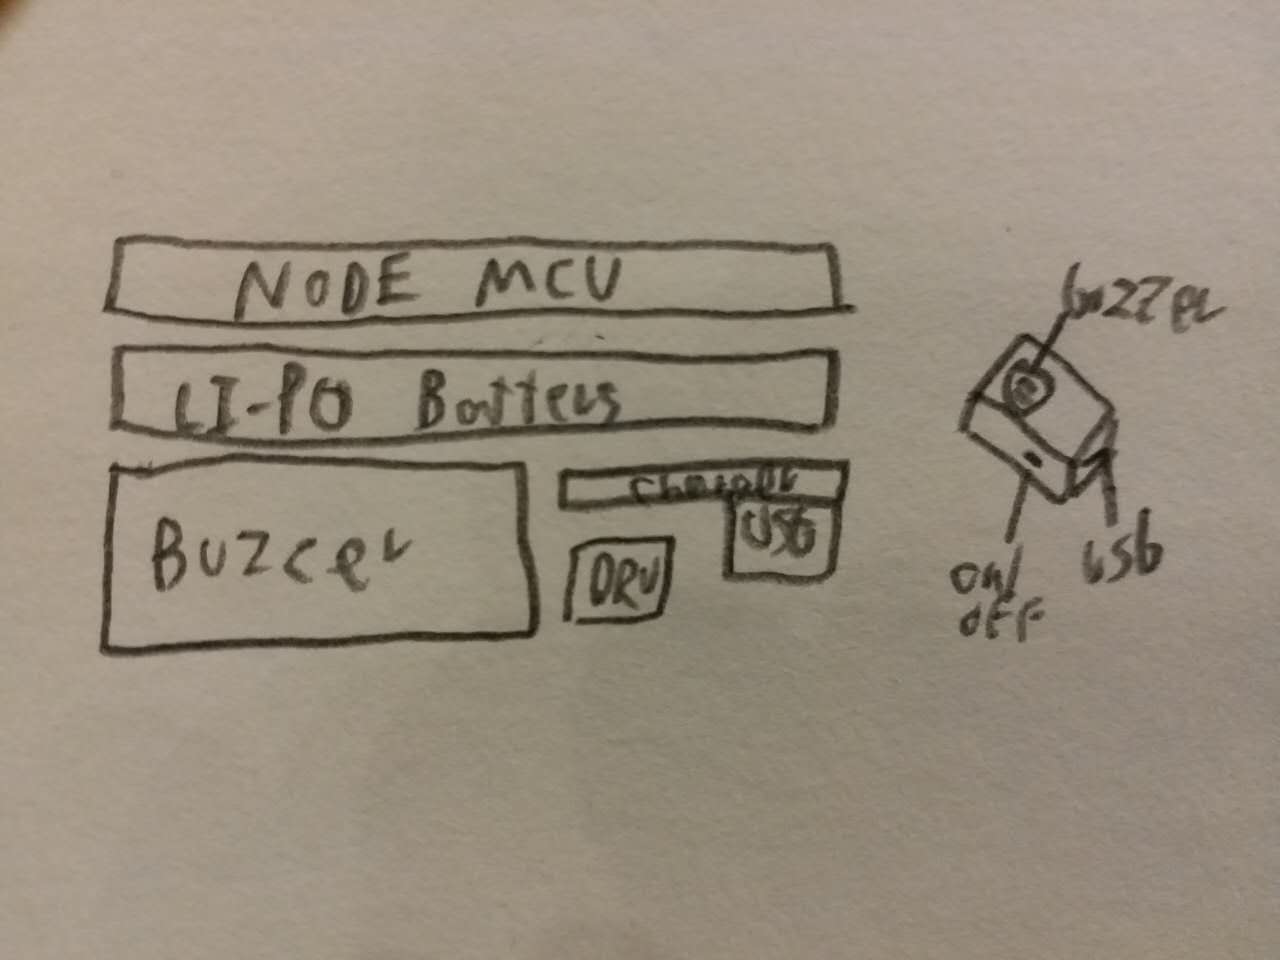 NODE MCU
LI-PO Battery
Buzzer
charger
USB
DRV
buzzer
on/
off
usb